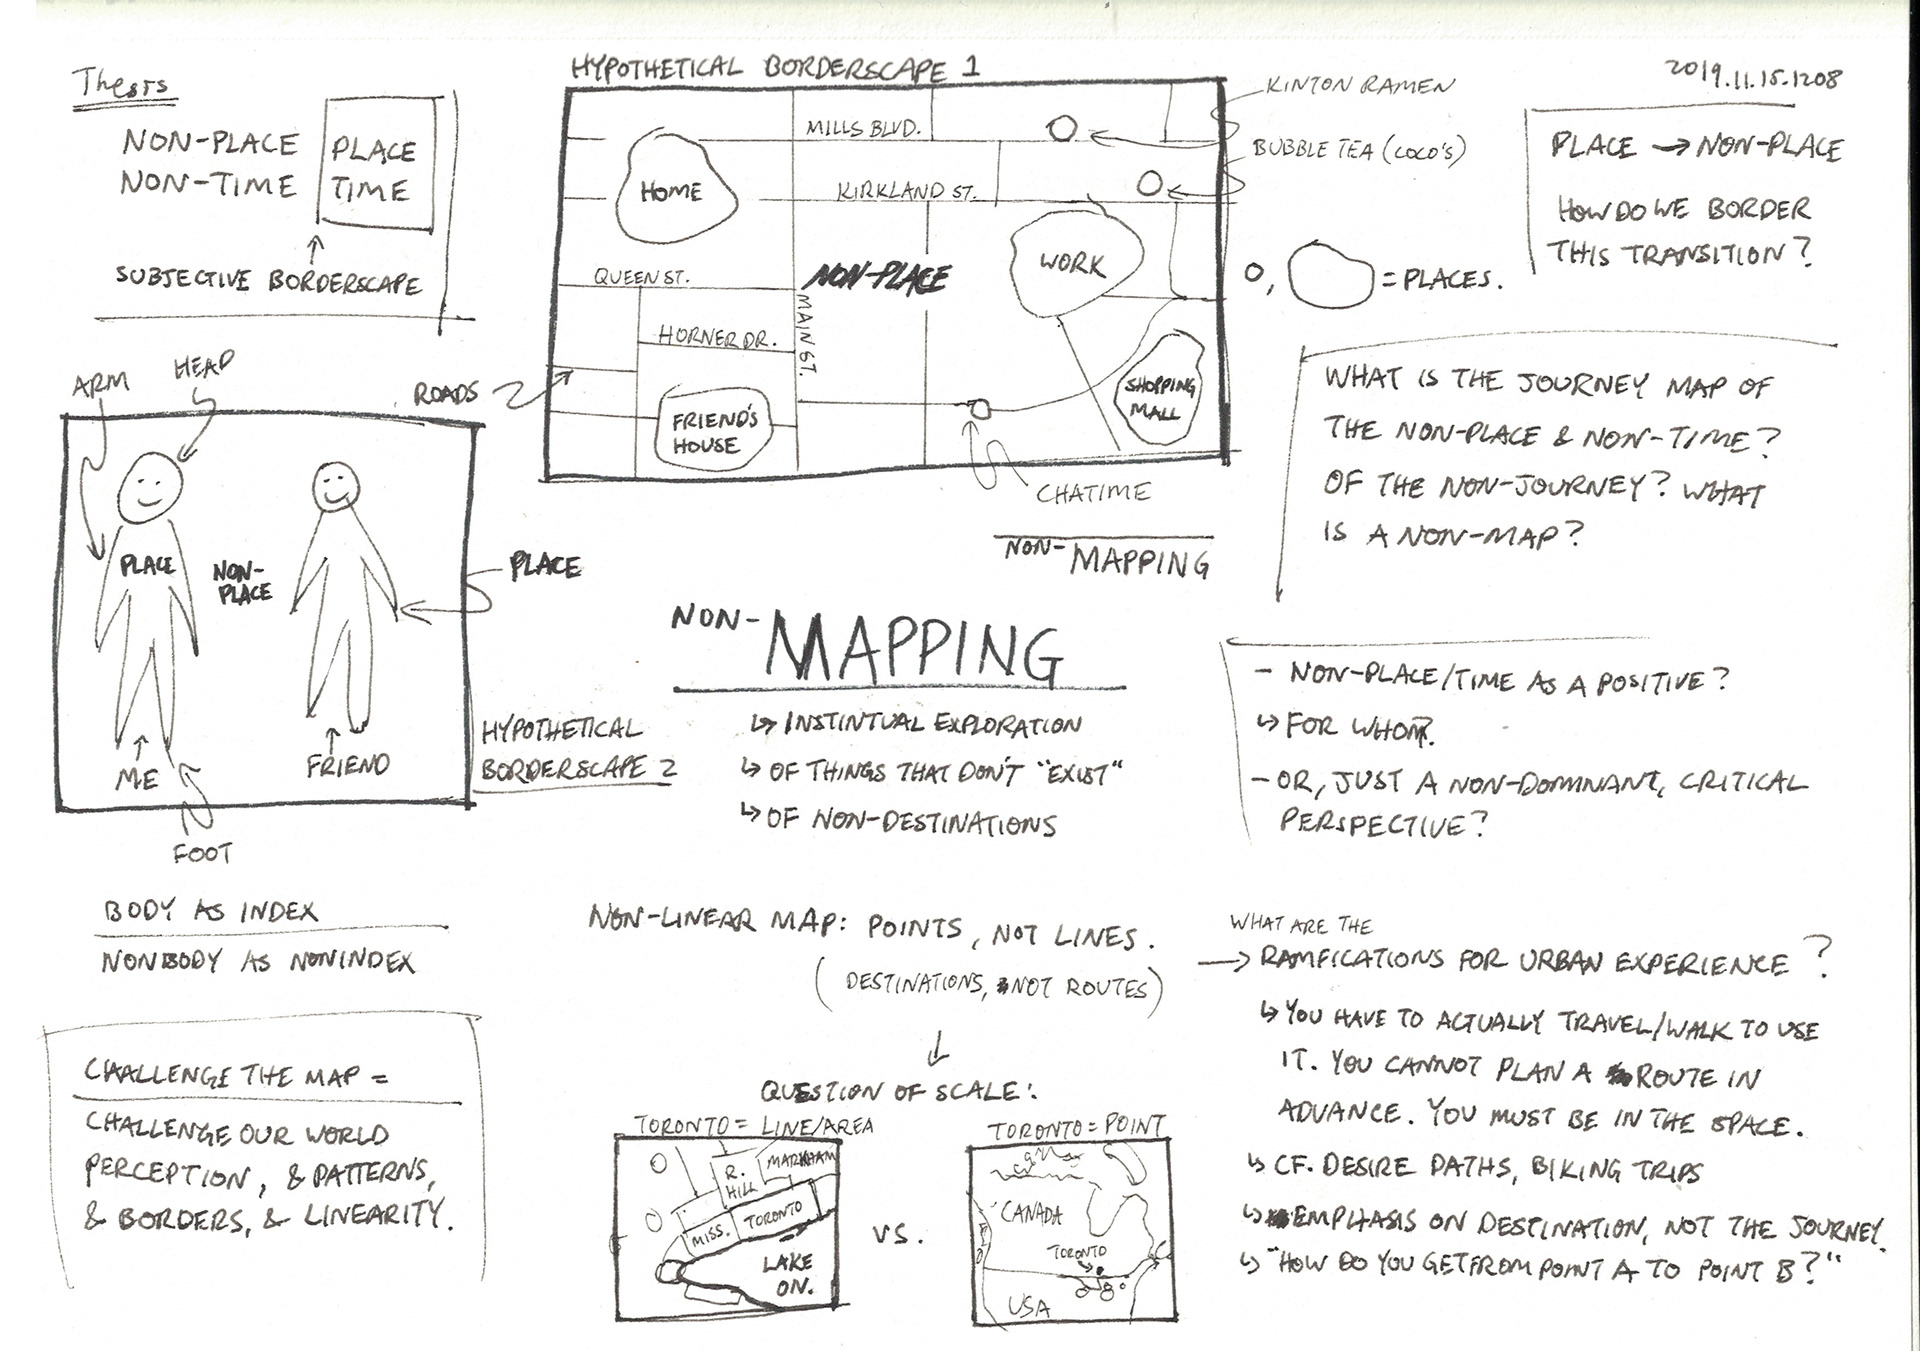 Thesis
NON-PLACE
NON-TIME
PLACE
TIME
SUBJECTIVE BORDERSCAPE
HYPOTHETICAL BORDERSCAPE 1
MILLS BLVD.
KIRKLAND ST.
HOME
WORK
QUEEN ST.
NON-PLACE
MAIN ST.
HORNER DR.
FRIEND'S
HOUSE
SHOPPING
MALL
ROADS
CHATIME
KINTON RAMEN
BUBBLE TEA (COCO'S)
= PLACES.
2019.11.15.1208
PLACE → NON-PLACE
HOW DO WE BORDER
THIS TRANSITION?
WHAT IS THE JOURNEY MAP OF
THE NON-PLACE & NON-TIME?
OF THE NON-JOURNEY? WHAT
IS A NON-MAP?
ARM
HEAD
PLACE
NON-
PLACE
PLACE
ME
FRIEND
FOOT
HYPOTHETICAL
BORDERSCAPE 2
NON-MAPPING
NON-MAPPING
↳ INSTINTUAL EXPLORATION
↳ OF THINGS THAT DON'T "EXIST"
↳ OF NON-DESTINATIONS
- NON-PLACE/TIME AS A POSITIVE?
↳ FOR WHOM?
- OR, JUST A NON-DOMINANT, CRITICAL
PERSPECTIVE?
BODY AS INDEX
NONBODY AS NONINDEX
CHALLENGE THE MAP =
CHALLENGE OUR WORLD
PERCEPTION, & PATTERNS,
& BORDERS, & LINEARITY.
NON-LINEAR MAP: POINTS, NOT LINES.
(DESTINATIONS, NOT ROUTES)
QUESTION OF SCALE:
TORONTO = LINE/AREA
R.
HILL
MARKHAM
MISS.
TORONTO
LAKE
ON.
VS.
TORONTO = POINT
CANADA
TORONTO
USA
WHAT ARE THE
→ RAMFICATIONS FOR URBAN EXPERIENCE?
↳ YOU HAVE TO ACTUALLY TRAVEL/WALK TO USE
IT. YOU CANNOT PLAN A ROUTE IN
ADVANCE. YOU MUST BE IN THE SPACE.
↳ CF. DESIRE PATHS, BIKING TRIPS
↳ EMPHASIS ON DESTINATION, NOT THE JOURNEY.
↳ "HOW DO YOU GET FROM POINT A TO POINT B?"